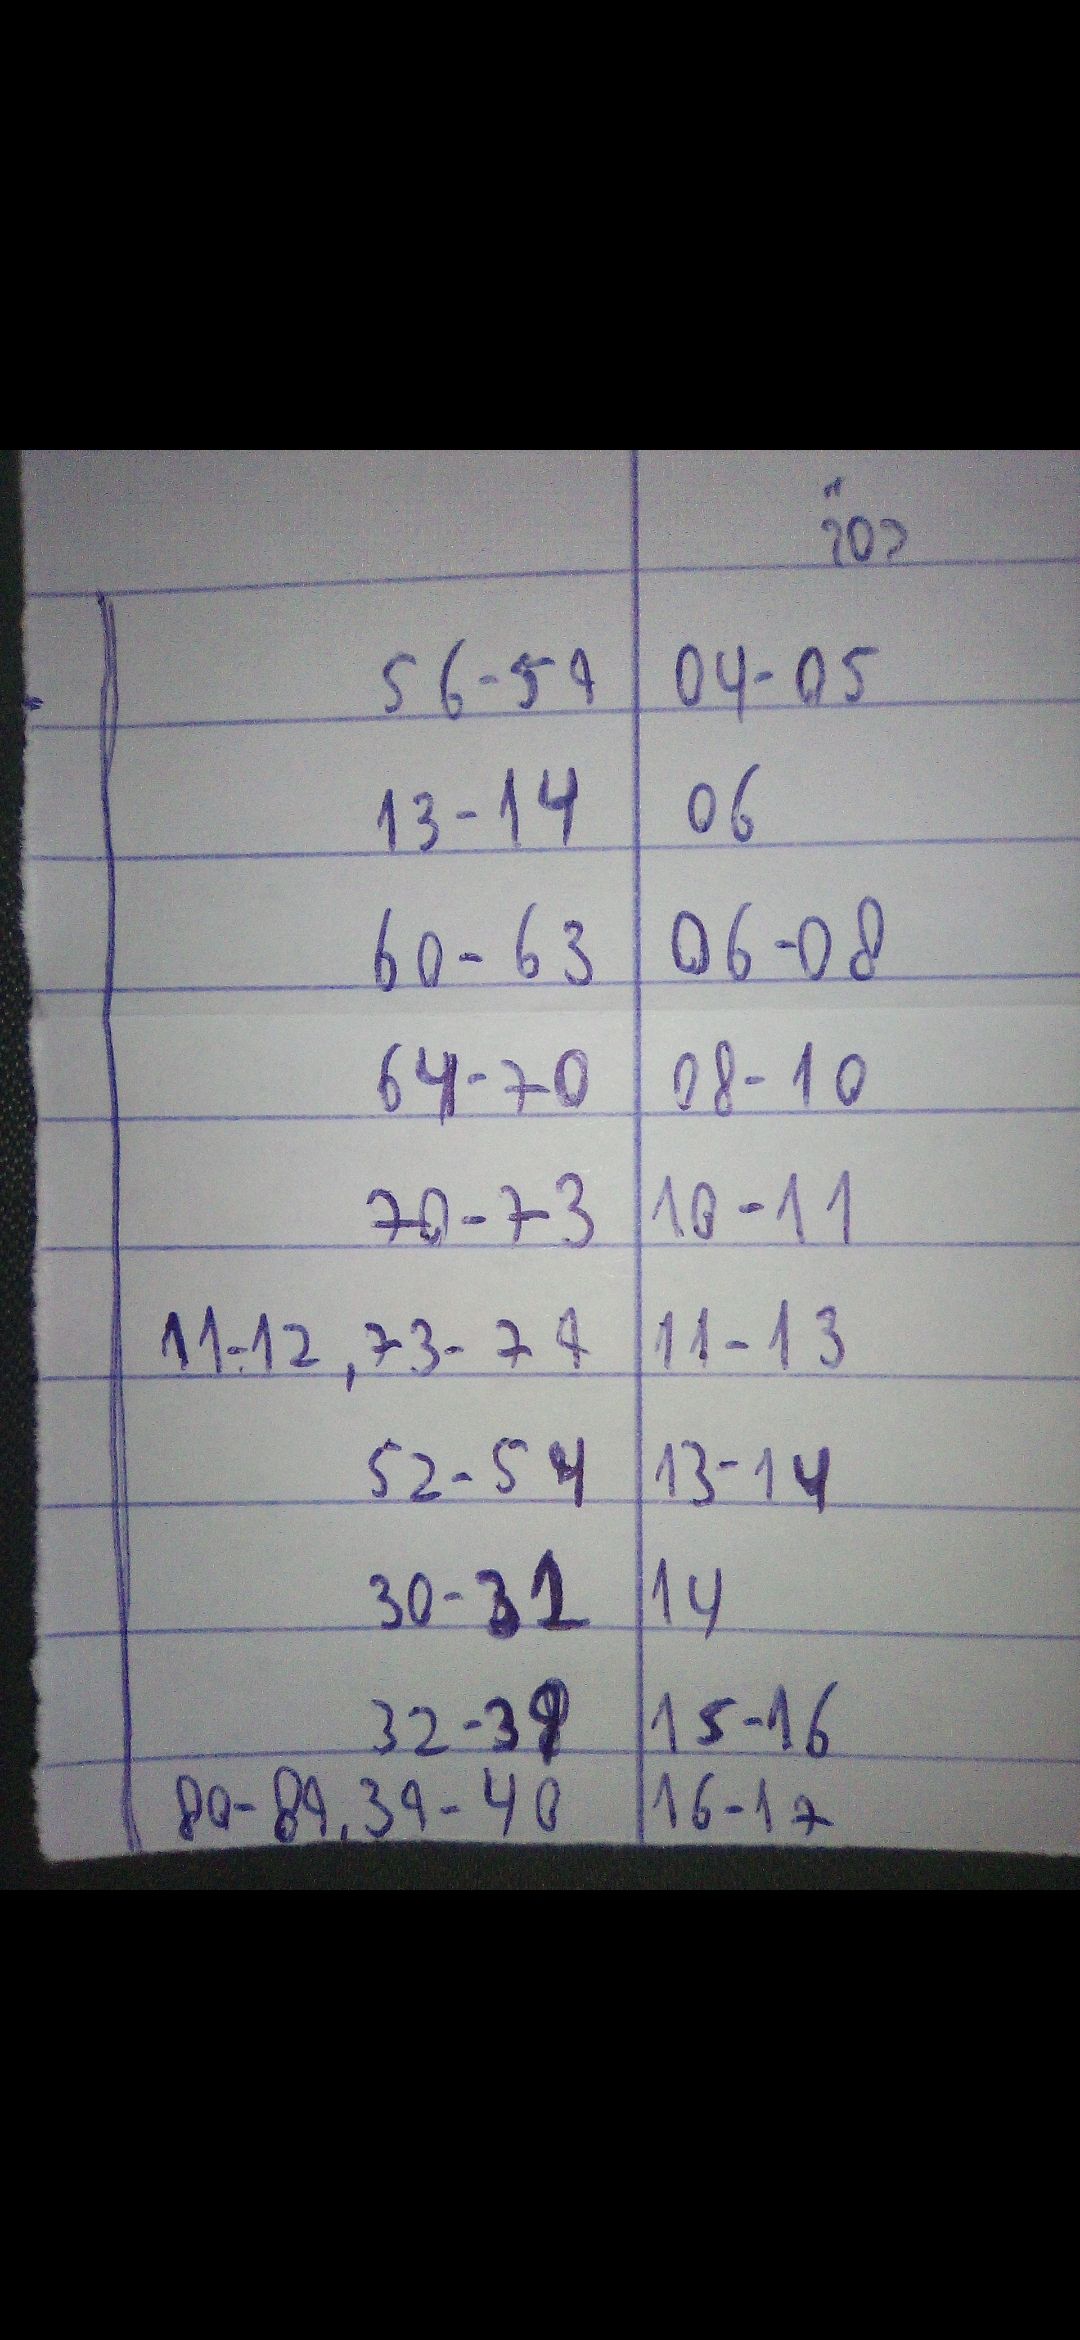 56-59 04-05
13-14 06
60-63 06-08
64-70 08-10
70-73 10-11
11-12, 73-79 11-13
52-54 13-14
30-31 14
32-39 15-16
80-89, 39-40 16-17